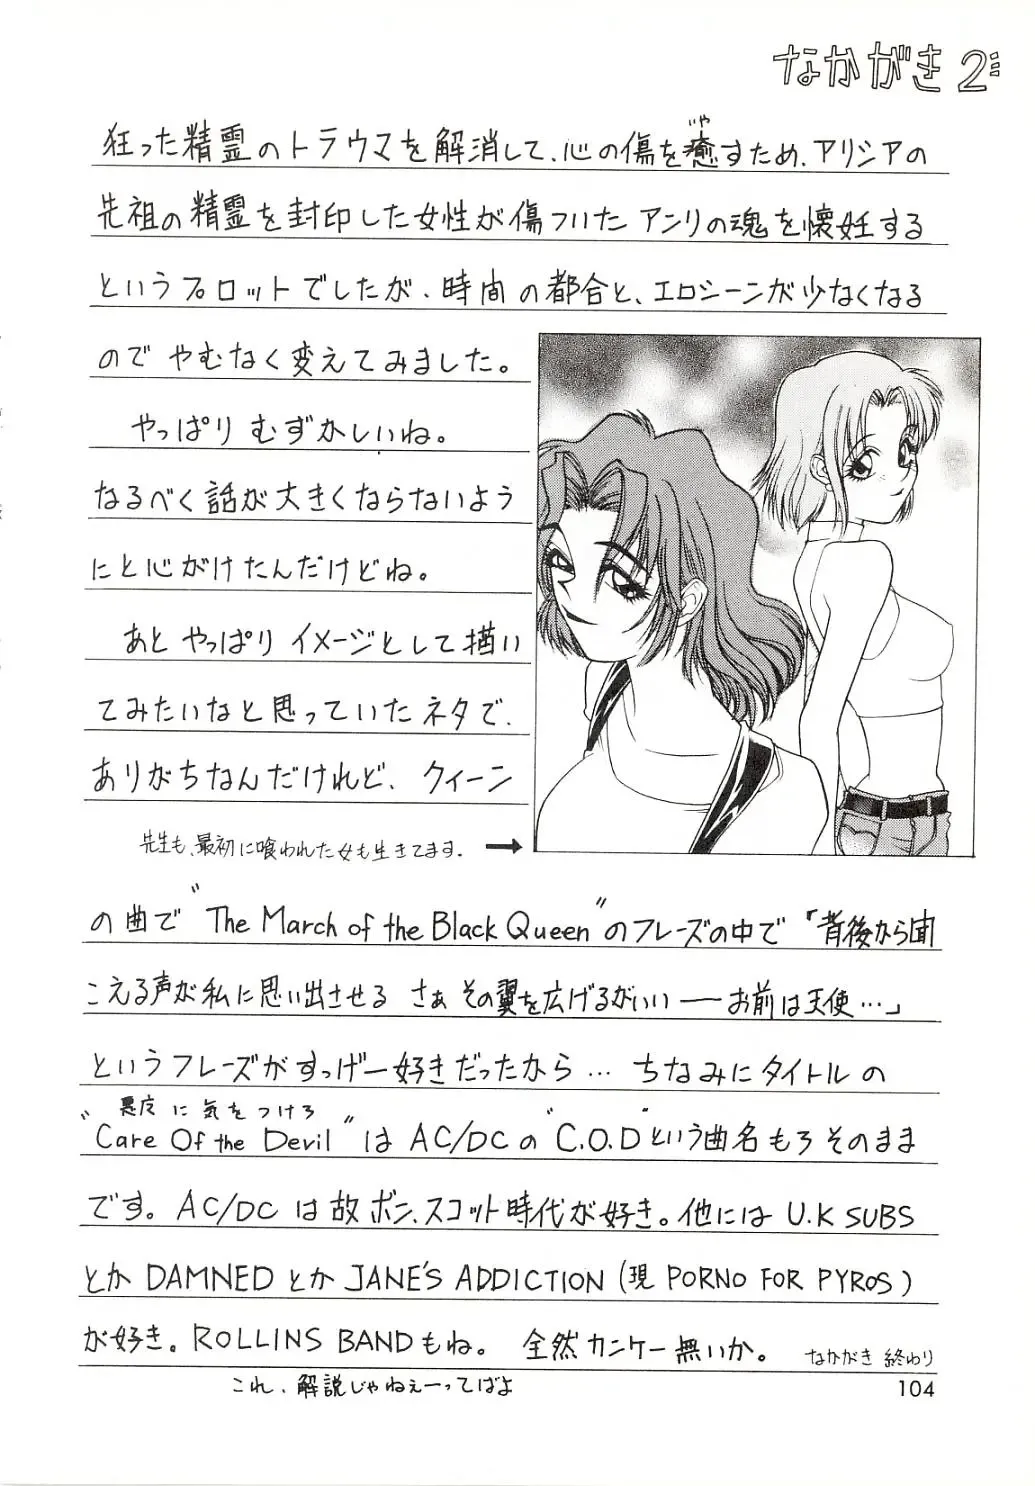 なかがき2
狂った精霊のトラウマを解消して、心の傷を癒すため、アリシアの
いや
先祖の精霊を封印した女性が傷ついたアンリの魂を懐妊する
というプロットでしたが、時間の都合と、エロシーンが少なくなる
のでやむなく変えてみました。
やっぱりむずかしいね。
なるべく話が大きくならないよう
にと心がけたんだけどね。
あとやっぱりイメージとして描い
てみたいなと思っていたネタで、
ありがちなんだけれど、クィーン
先生も、最初に喰われた女も生きてます。→
の曲で"The March of the Black Queen"のフレーズの中で「背後から聞
こえる声が私に思い出させる さぁその翼を広げるがいい——お前は天使…」
というフレーズがすっげー好きだったから… ちなみにタイトルの
悪魔に気をつけろ
"Care Of the Devil"はAC/DCの"C.O.D"という曲名もろそのまま
です。AC/DCは故ボン、スコット時代が好き。他にはU.K SUBS
とかDAMNEDとかJANE'S ADDICTION(現PORNO FOR PYROS)
が好き。ROLLINS BANDもね。 全然カンケー無いか。 なかがき 終わり
これ、解説じゃねぇーってばよ
104